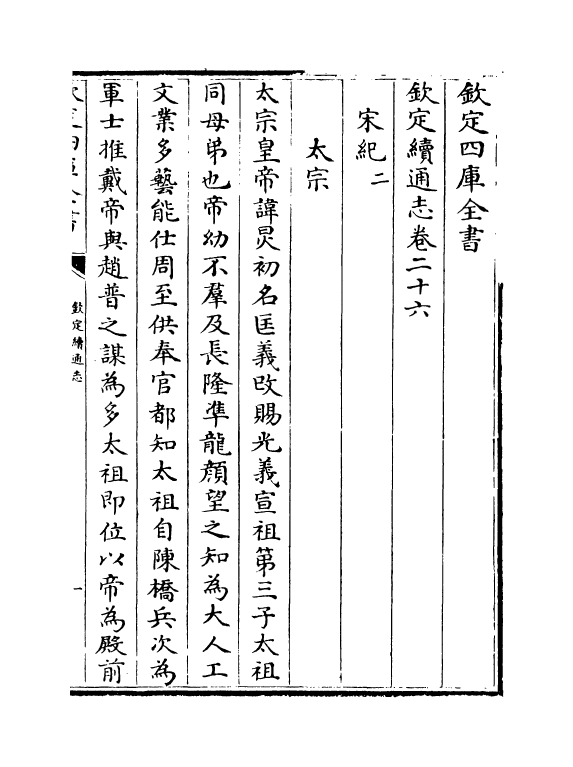 欽定四庫全書
欽定續通志卷二十六
宋紀二
太宗
太宗皇帝諱炅初名匡義改賜光義宣祖第三子太祖
同母弟也帝幼不羣及長隆準龍顏望之知為大人工
文業多藝能仕周至供奉官都知太祖自陳橋兵次為
軍士推戴帝與趙普之謀為多太祖即位以帝為殿前
欽定四庫全書
欽定續通志
一